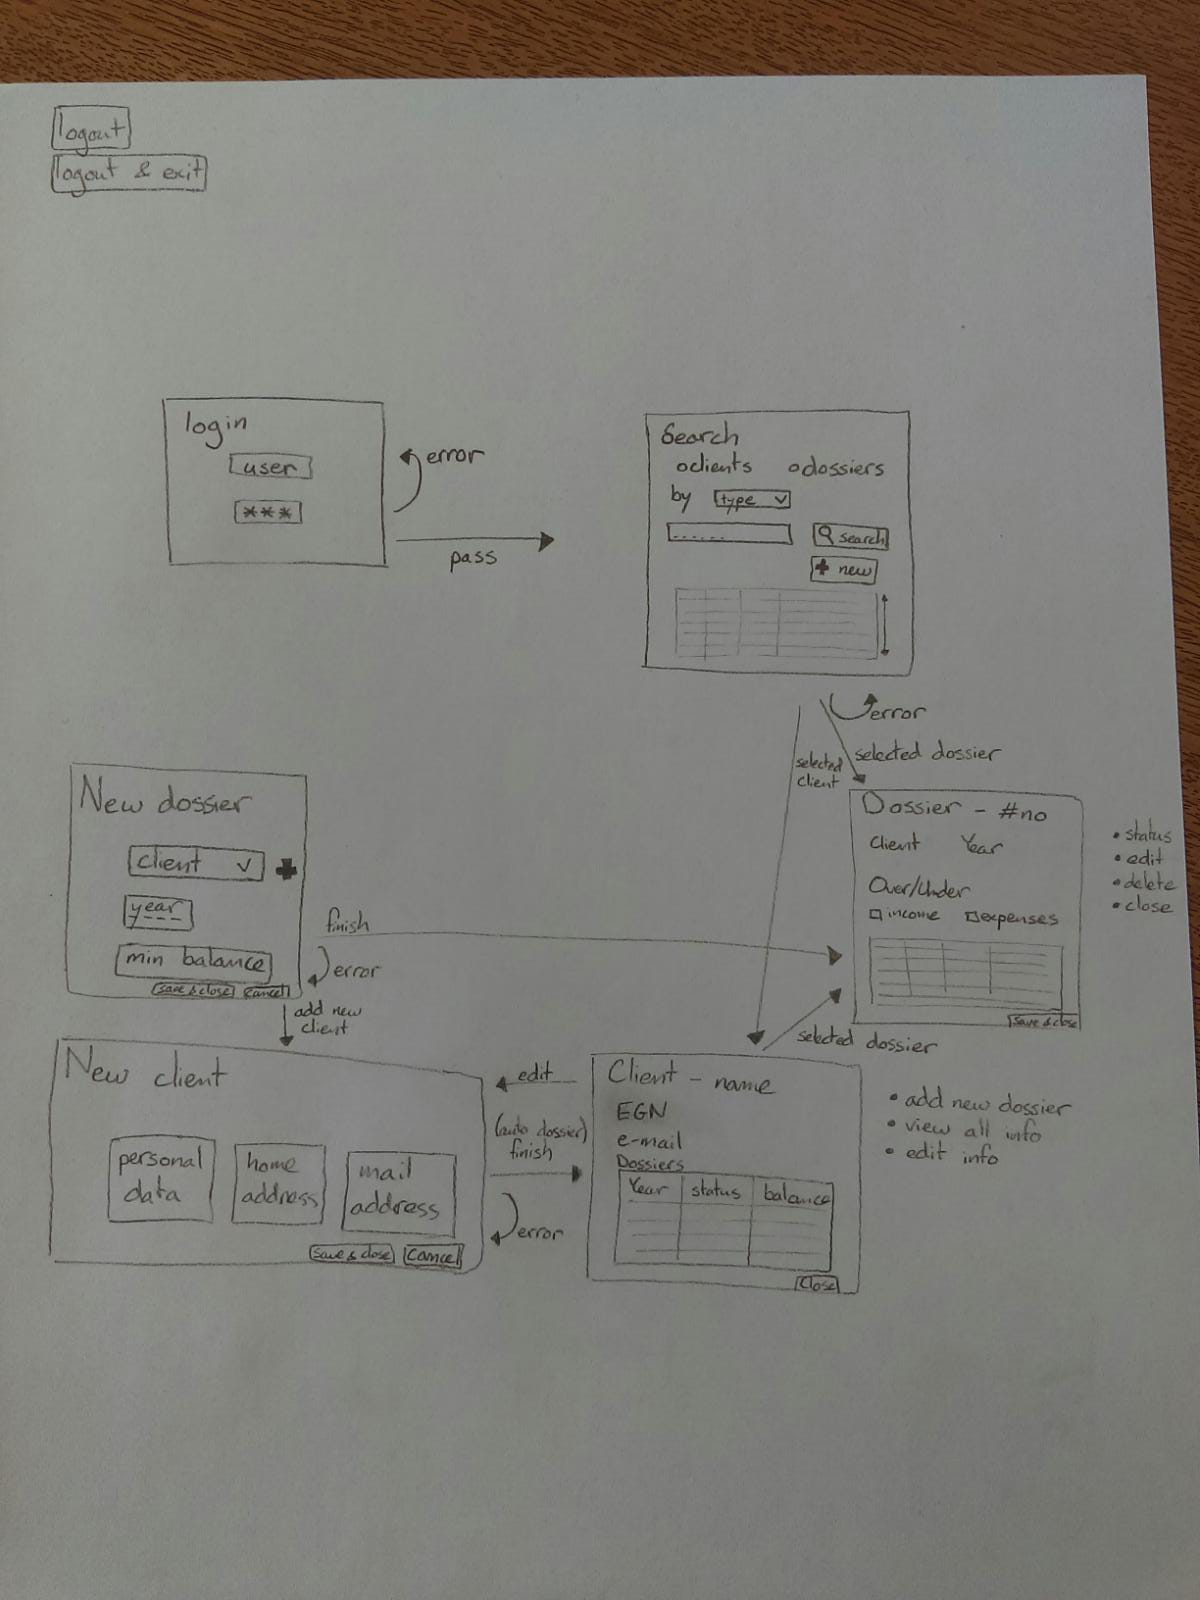 logout
logout & exit
login
user
***
error
pass
Search
clients dossiers
by type
......
search
+ new
error
selected dossier
selected
client
New dossier
client
year
min balance
save & close cancel
finish
error
add new
client
Dossier - #no
Client Year
Over/Under
income expenses
save & close
• status
• edit
• delete
• close
selected dossier
New client
personal
data
home
address
mail
address
save & close cancel
edit
(auto dossier)
finish
error
Client - name
EGN
e-mail
Dossiers
Year status balance
Close
• add new dossier
• view all info
• edit info